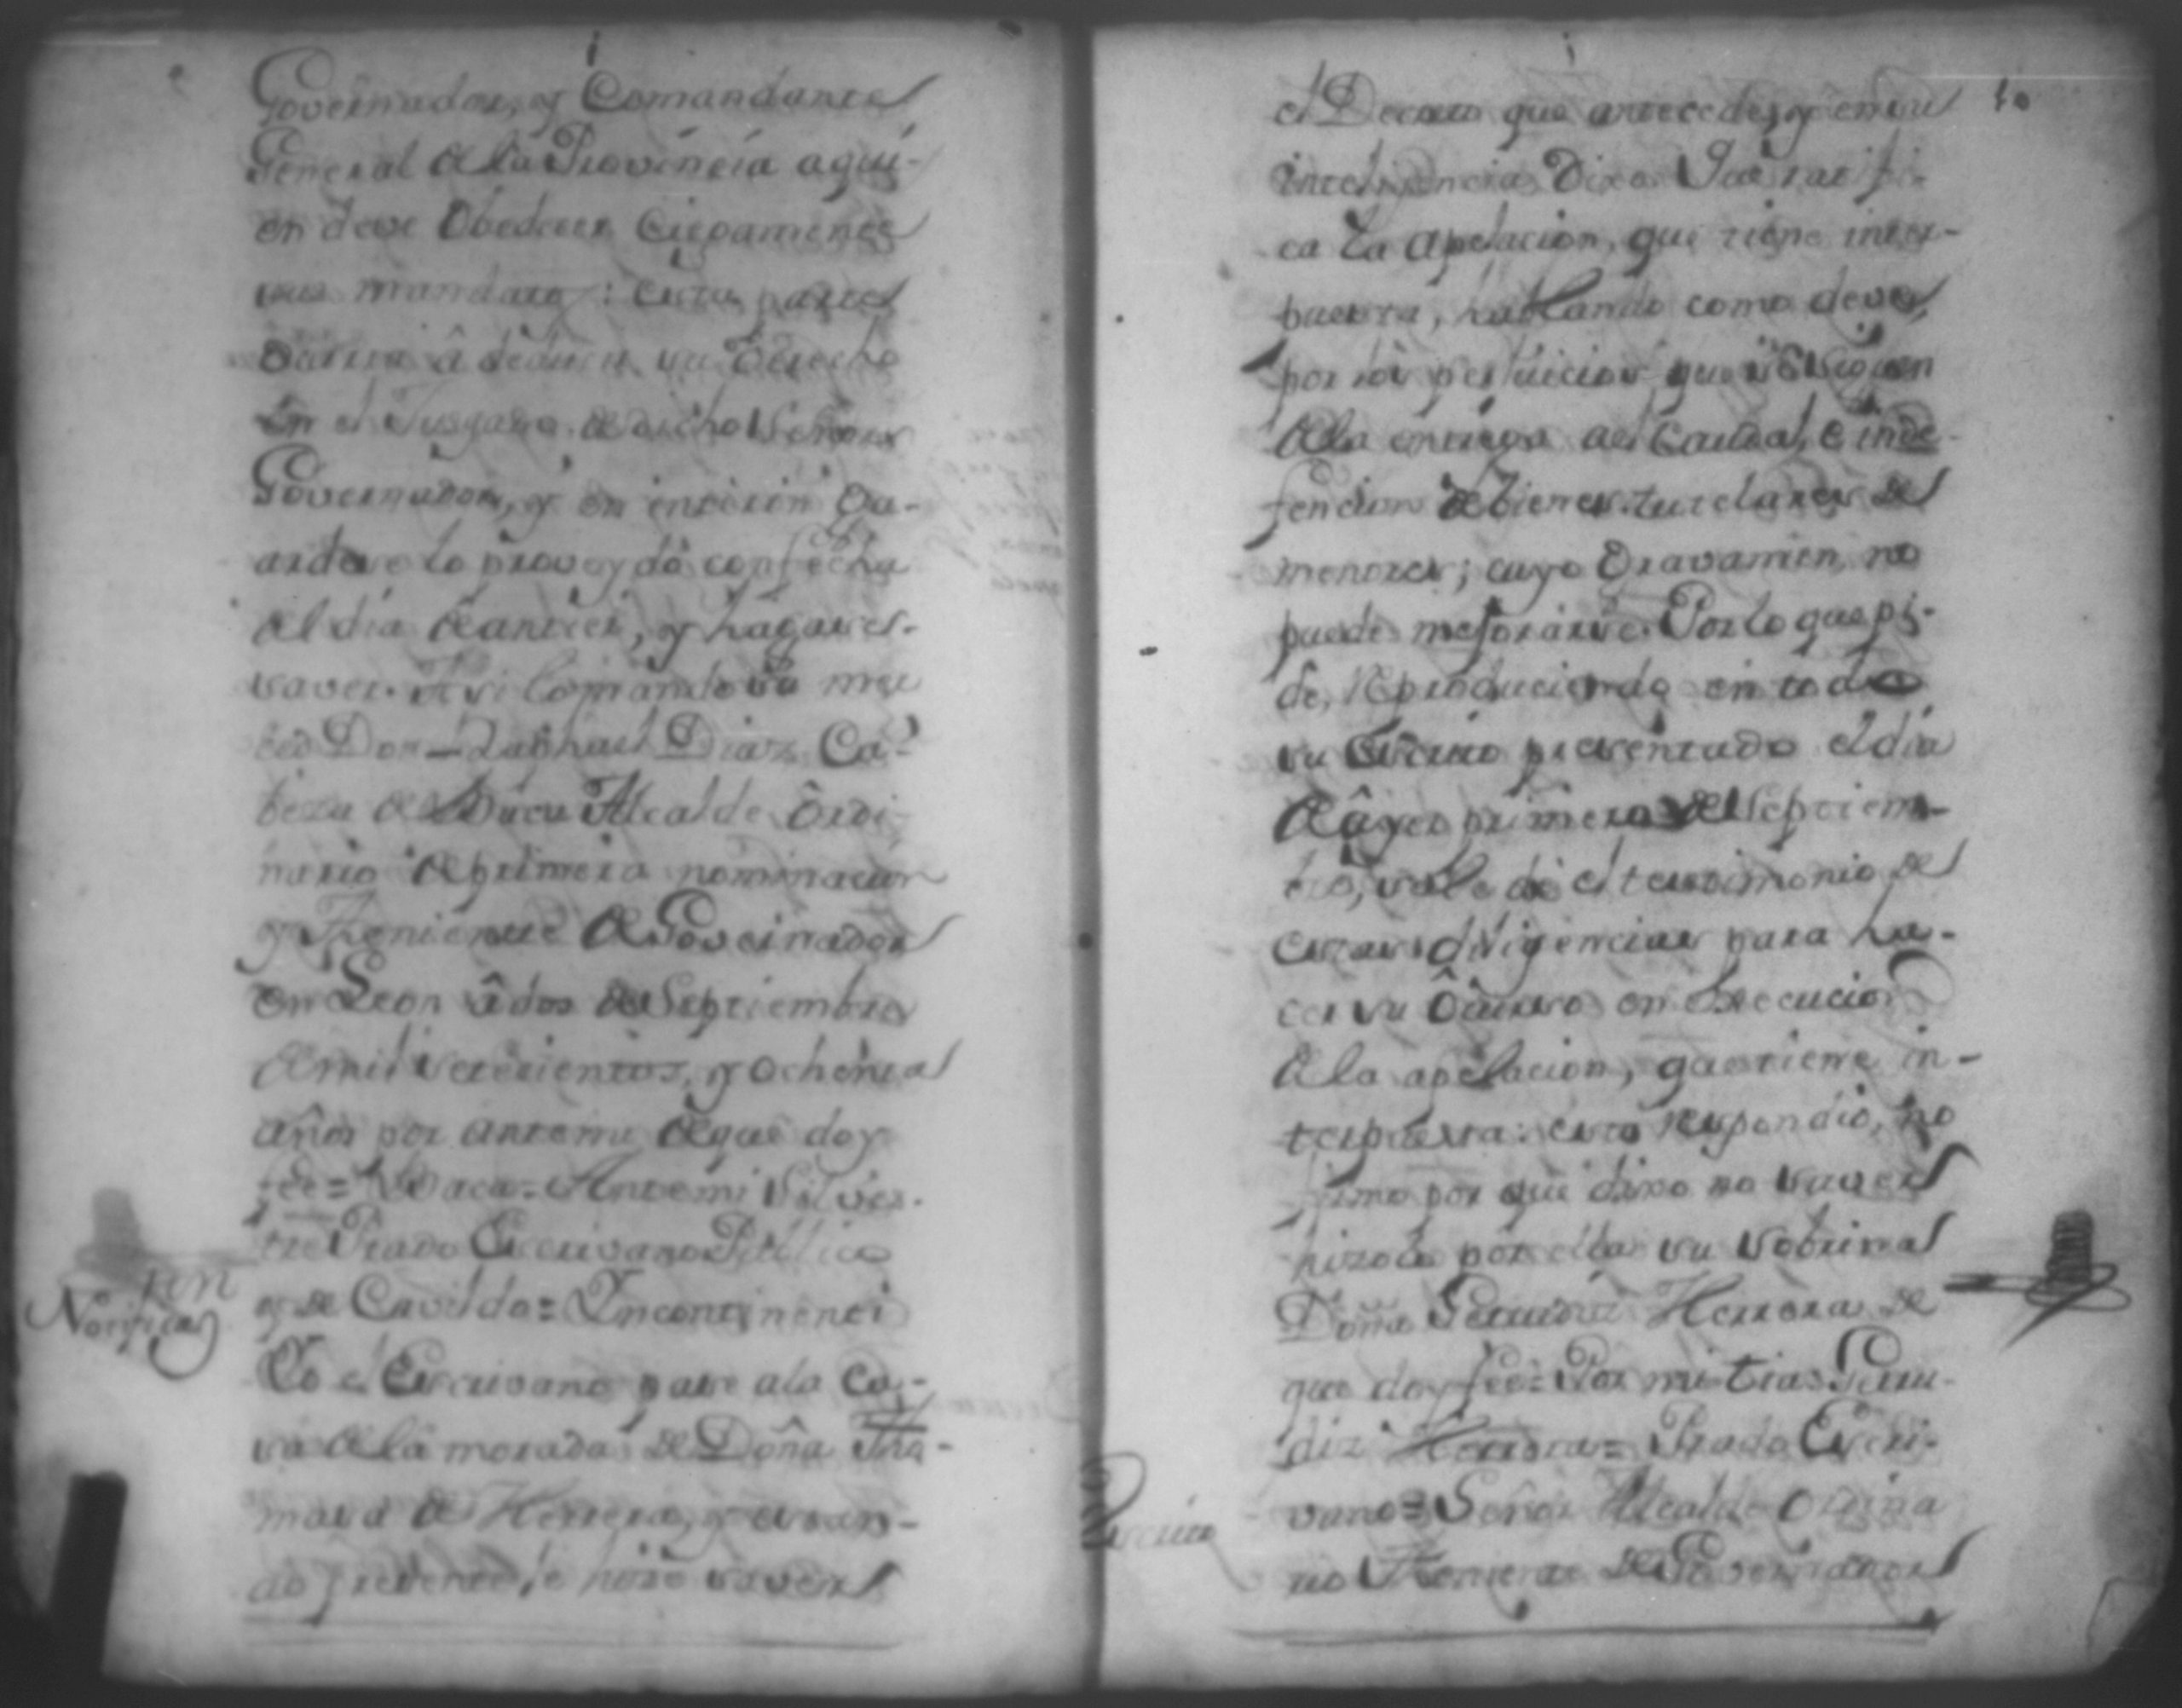 Governador, y Comandante
General de la Provincia aqui-
en deve Obedecer Ciegamente
sus mandatos: esta parte
â deducir su Derecho
en el Jusgado de dicho Señor
Governador, y en interin Gu-
ardese lo proveydo con fecha
del dia de antier, y hagase sa-
saver. Asi lo mando su mer
ced Don Raphael Diaz Ca-
beza de Baca Alcalde Ôrdi-
nario de primera nominacion
y Theniente de Governador
en Leon â dos de Septiembre
de mil setecientos, y ochenta
años por antemi de que doy
fee = Baca = Antemi Silves-
tre Prado Escrivano Publico
y de Cavildo = Yncontinenti
Notificas.on
Yo el Escrivano pase ala Ca-
sa de la morada de Doña Tha-
mara de Herrera, y estan-
do presente, le hize saver
10
el Decreto que antecede, y en su
inteligencia Dixo Que ratifi-
ca la Apelacion, que tiene inter-
puesta, hablando como deve,
por los perjuicios que se siguen
de la entrega del Caudal, e inde-
fencion de bienes tutelares de
menores; cuyo Gravamen, no
puede mejorarse. Por lo que pi-
de, Reproduciendo en todo
su Escrito presentado el dia
de âyer primero de Septiem-
bre, se le dé el testimonio de
estas diligencias para ha-
cer su Ôcurso en Execucion
de la apelacion, que tiene in-
terpuesta: esto respondio, no
firmo por que dixo no saver
hizolo por ella su sobrina
Doña Gertrudiz Herrera de
que doy fee = Por mi tia = Gertru-
diz Herrera = Prado Escri-
Escrito
vano = Señor Alcalde Ordina
rio Theniente de Governador